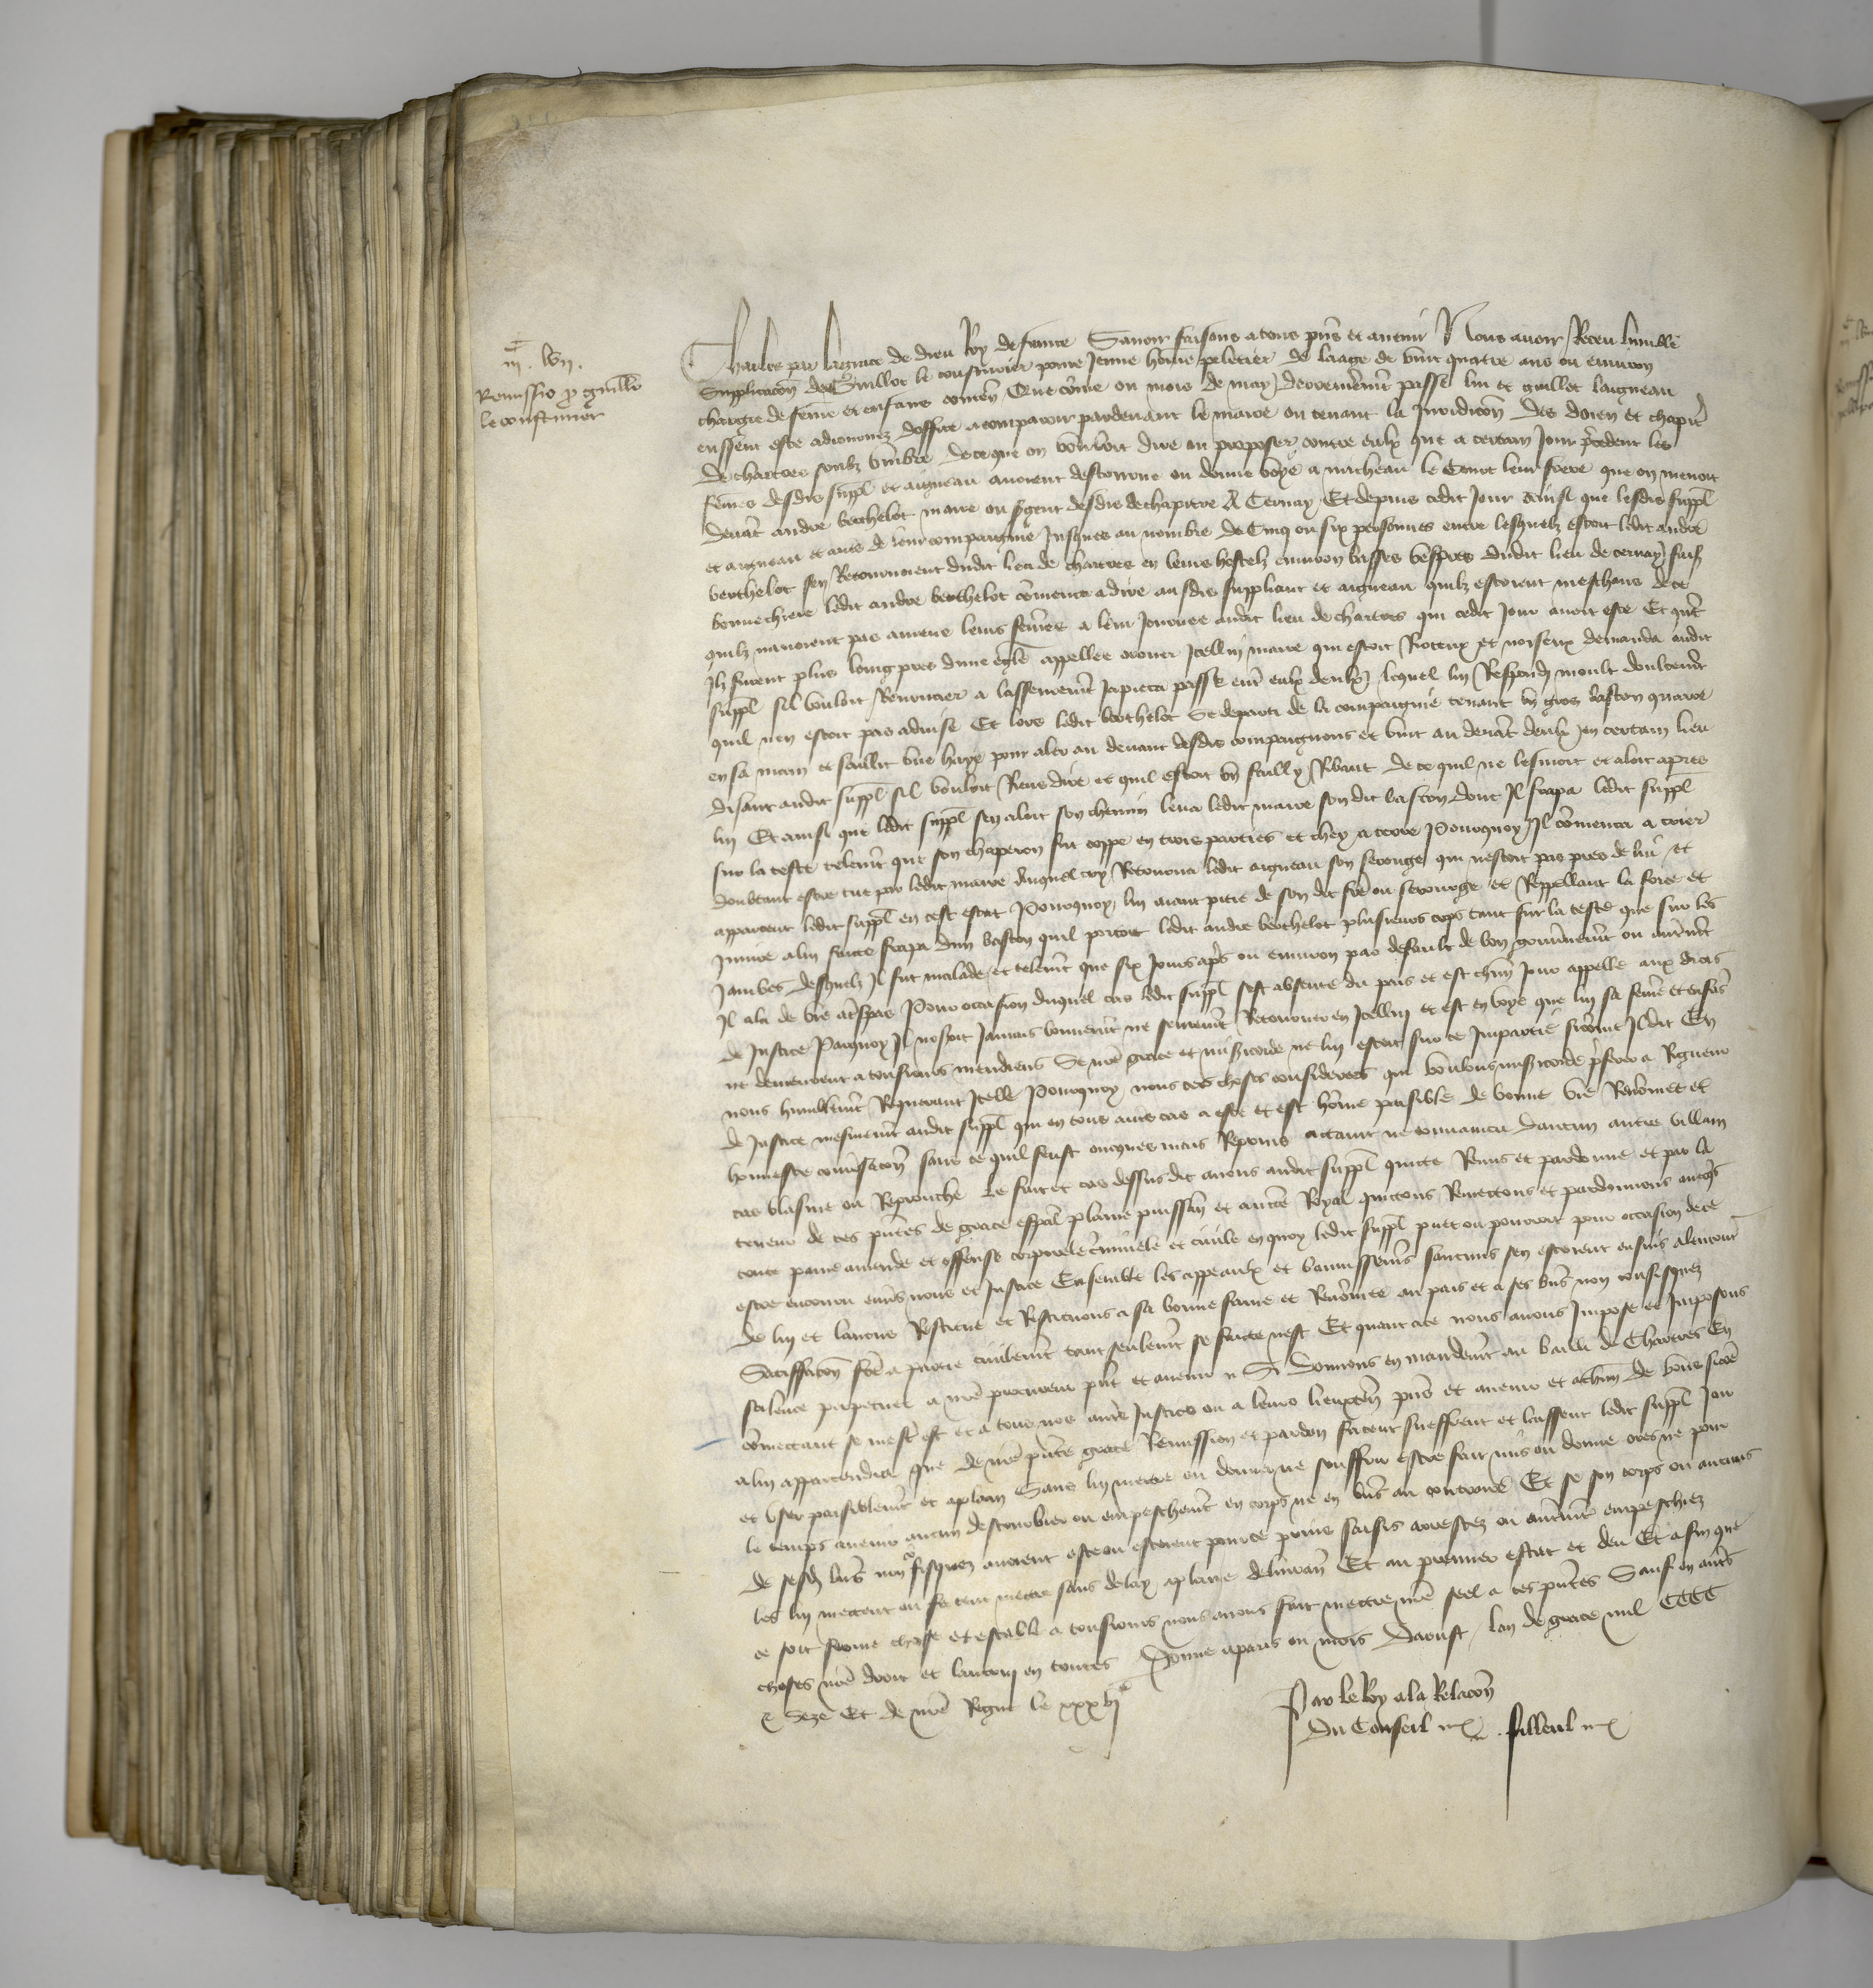 iiic. lvii.
Remissio pro guillo
le coustumier
Charles par la grace de dieu Roy de france Sauoir faisons a tous pñs et auenir Nous auoir Receu lumble
Supplicacõn de Guillot le coustumier poure Jeune hõme peletier de laage de vint quatre ans ou enuiron
chargie de feme et enfans conteñ Que cõme ou mois de may derrenieremt passe lui et guillet laigneau
eussent este adiournez doffice a comparoir pardeuant le maire ou tenant la Juridicõn des doien et chapitre
de chartres soubz vmbre de ce que on vouloit dire ou proposer contre eulx que a certain Jour precedent les
femes desdis suppl et aigneau auoient destourne ou donne voye a micheau le leur frere que on menoit
deuãt andre berthelot maire ou sergent desdis de chapitre A Cernay Et depuis cedit Jour ainsi que lesdis suppl
et aigneau et autres de leur compaignie Jusques au nombre de Cinq ou six personnes entre lesquelz estoit ledit andre
berthelot sen Retournoient dudit lieu de chartres en leurs hostelz enuiron basses vespres dudit lieu de cernay
bonne chiere ledit andre berthelot cõmenca a dire ausdis suppliant et aigneau quilz estoient meschans de ce
quilz nauoient pas amene leurs femes a leur Journee audit lieu de chartres qui cedit Jour auoit este Et quãt
Ilz furent plus loing pres dune eglise appellee Icellui maire qui estoit Rioteux et noiseux demanda audit
suppl sil vouloit Renoncier a lasseuremẽt Japieca passe entre eulx deulx lequel lui Respondi moult doulcemẽt
quil nen estoit pas aduise Et lors ledit berthelot se departi de la compaignie tenant vn gros baston quarre
en sa main et sailli vne haye pour aler au deuant desdis compaignons et vint au deuãt deulx en certain lieu
disant audit suppl sil vouloit Riens dire et quil estoit vn failly Ribaut de ce quil ne lesmoit et aloit apres
lui Et ainsi que ledit suppl sen aloit son chemin leua ledit maire son dit baston dont Il frapa ledit suppl
sur la teste telemt que son chaperon fut coppe en trois parties et chey a terre Pourquoy Il cõmenca a crier
doubtant estre tue par ledit maire Auquel cry Retourna ledit aigneau son serouge qui nestoit pas pres de lui et
apparceut ledit suppl en cest estat Pourquoy lui aiant pitie de son dit frere ou serourge et Repellant la force et
Iniure a lui faicte frapa dun baston quil portoit ledit andre berthelot plusieurs cops tant sur la teste que sur les
Jambes desquelz Il fut malade et telemt que six Jours apres ou enuiron par default de bon gouuernemt ou autremt
Il ala de vie a trespas Pour occasion duquel cas ledit suppl sest absente du pais et est chun Jour appelle aux drois
de Justice Parquoy Il noseroit Jamais bonnemt ne seuremt Retourner en Icellui et est en voye que lui sa feme et enfãs
ne demeurent a tousiours mendiens Se nre grace et misericorde ne lui estoit sur ce Impartie sicõme Il dit En
nous humblemt Requerant Icelle Pourquoy nous ces choses considerees qui voulons misericorde preferer a Rigueur
de Justice mesmemt audit suppl qui en tous autres cas a este et est hõme paisible de bonne vie Renõmee et
honneste conuersacõn sans ce quil feust oncques mais Reprins actaint ne conuaincu daucun autre villain
cas blasme ou Reprouche Le fait et cas dessus dit auons audit suppl quicte Remis et pardonne et par la
teneur de ces pñtes de grace especial plaine puissãn et auctte Royal quictons Remettons et pardonnons auecqs
toute paine amende et offense corporele crimiele et ciuile en quoy ledit suppl puet ou pourroit pour occasion de ce
estre encouru enuers nous et Justice Ensemble les appeaulx et bannissemens saucuns sen estoient ensuis alencontre
de lui et lauons Restitue et Restituons a sa bonne fame et Renõmee au pais et a ses biens non confisquez
Satisfacõn fcte a partie ciuilemt tant seulemt se faicte nest Et quant a ce nous auons Impose et Imposons
scilence perpetuel a nre procureur pñt et auenir Si donnons en mandemt au bailli de Chartres En
cõmettant se mestier est et a tous noz autres Justiciers ou a leurs lieuxten pñs et auenir et a chun deulx sicõe
a lui appartendra que de nre pñte grace Remission et pardon facent sueffrent et laissent ledit suppl Joir
et vser paisiblemt et a plain Sans lui mettre ou donner ne souffrir estre fait mis ou donne ores ne pour
le temps auenir aucun destourbier ou empeschemt en corps ne en biens au contraire Et se son corps ou aucuns
de sesd biens non cõfisquez auoient este ou estoient pour ce prins saisis arrestez ou autremt empeschiez
les lui mettent ou facent mettre sans delay a plaine deliurãn Et au premier estat et deu Et afin que
ce soit ferme chose et estable a tousiours nous auons fait mettre nre seel a ces pñtes Sauf en autres
choses nre droit et lautrui en toutes Donne a paris ou mois Daoust lan de grace mil CCCC
& Seze Et de nre Regne le xxxvie
Par le Roy a la Relacõn
Du Conseil filleul